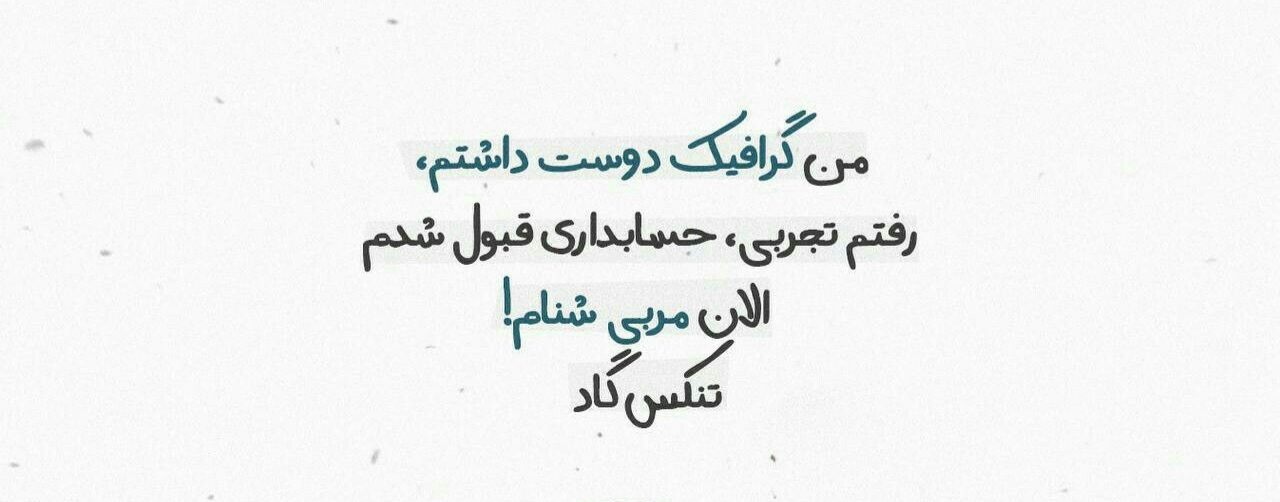 من گرافیک دوست داشتم،
رفتم تجربی، حسابداری قبول شدم
الان مربی شنام!
تنکس گاد